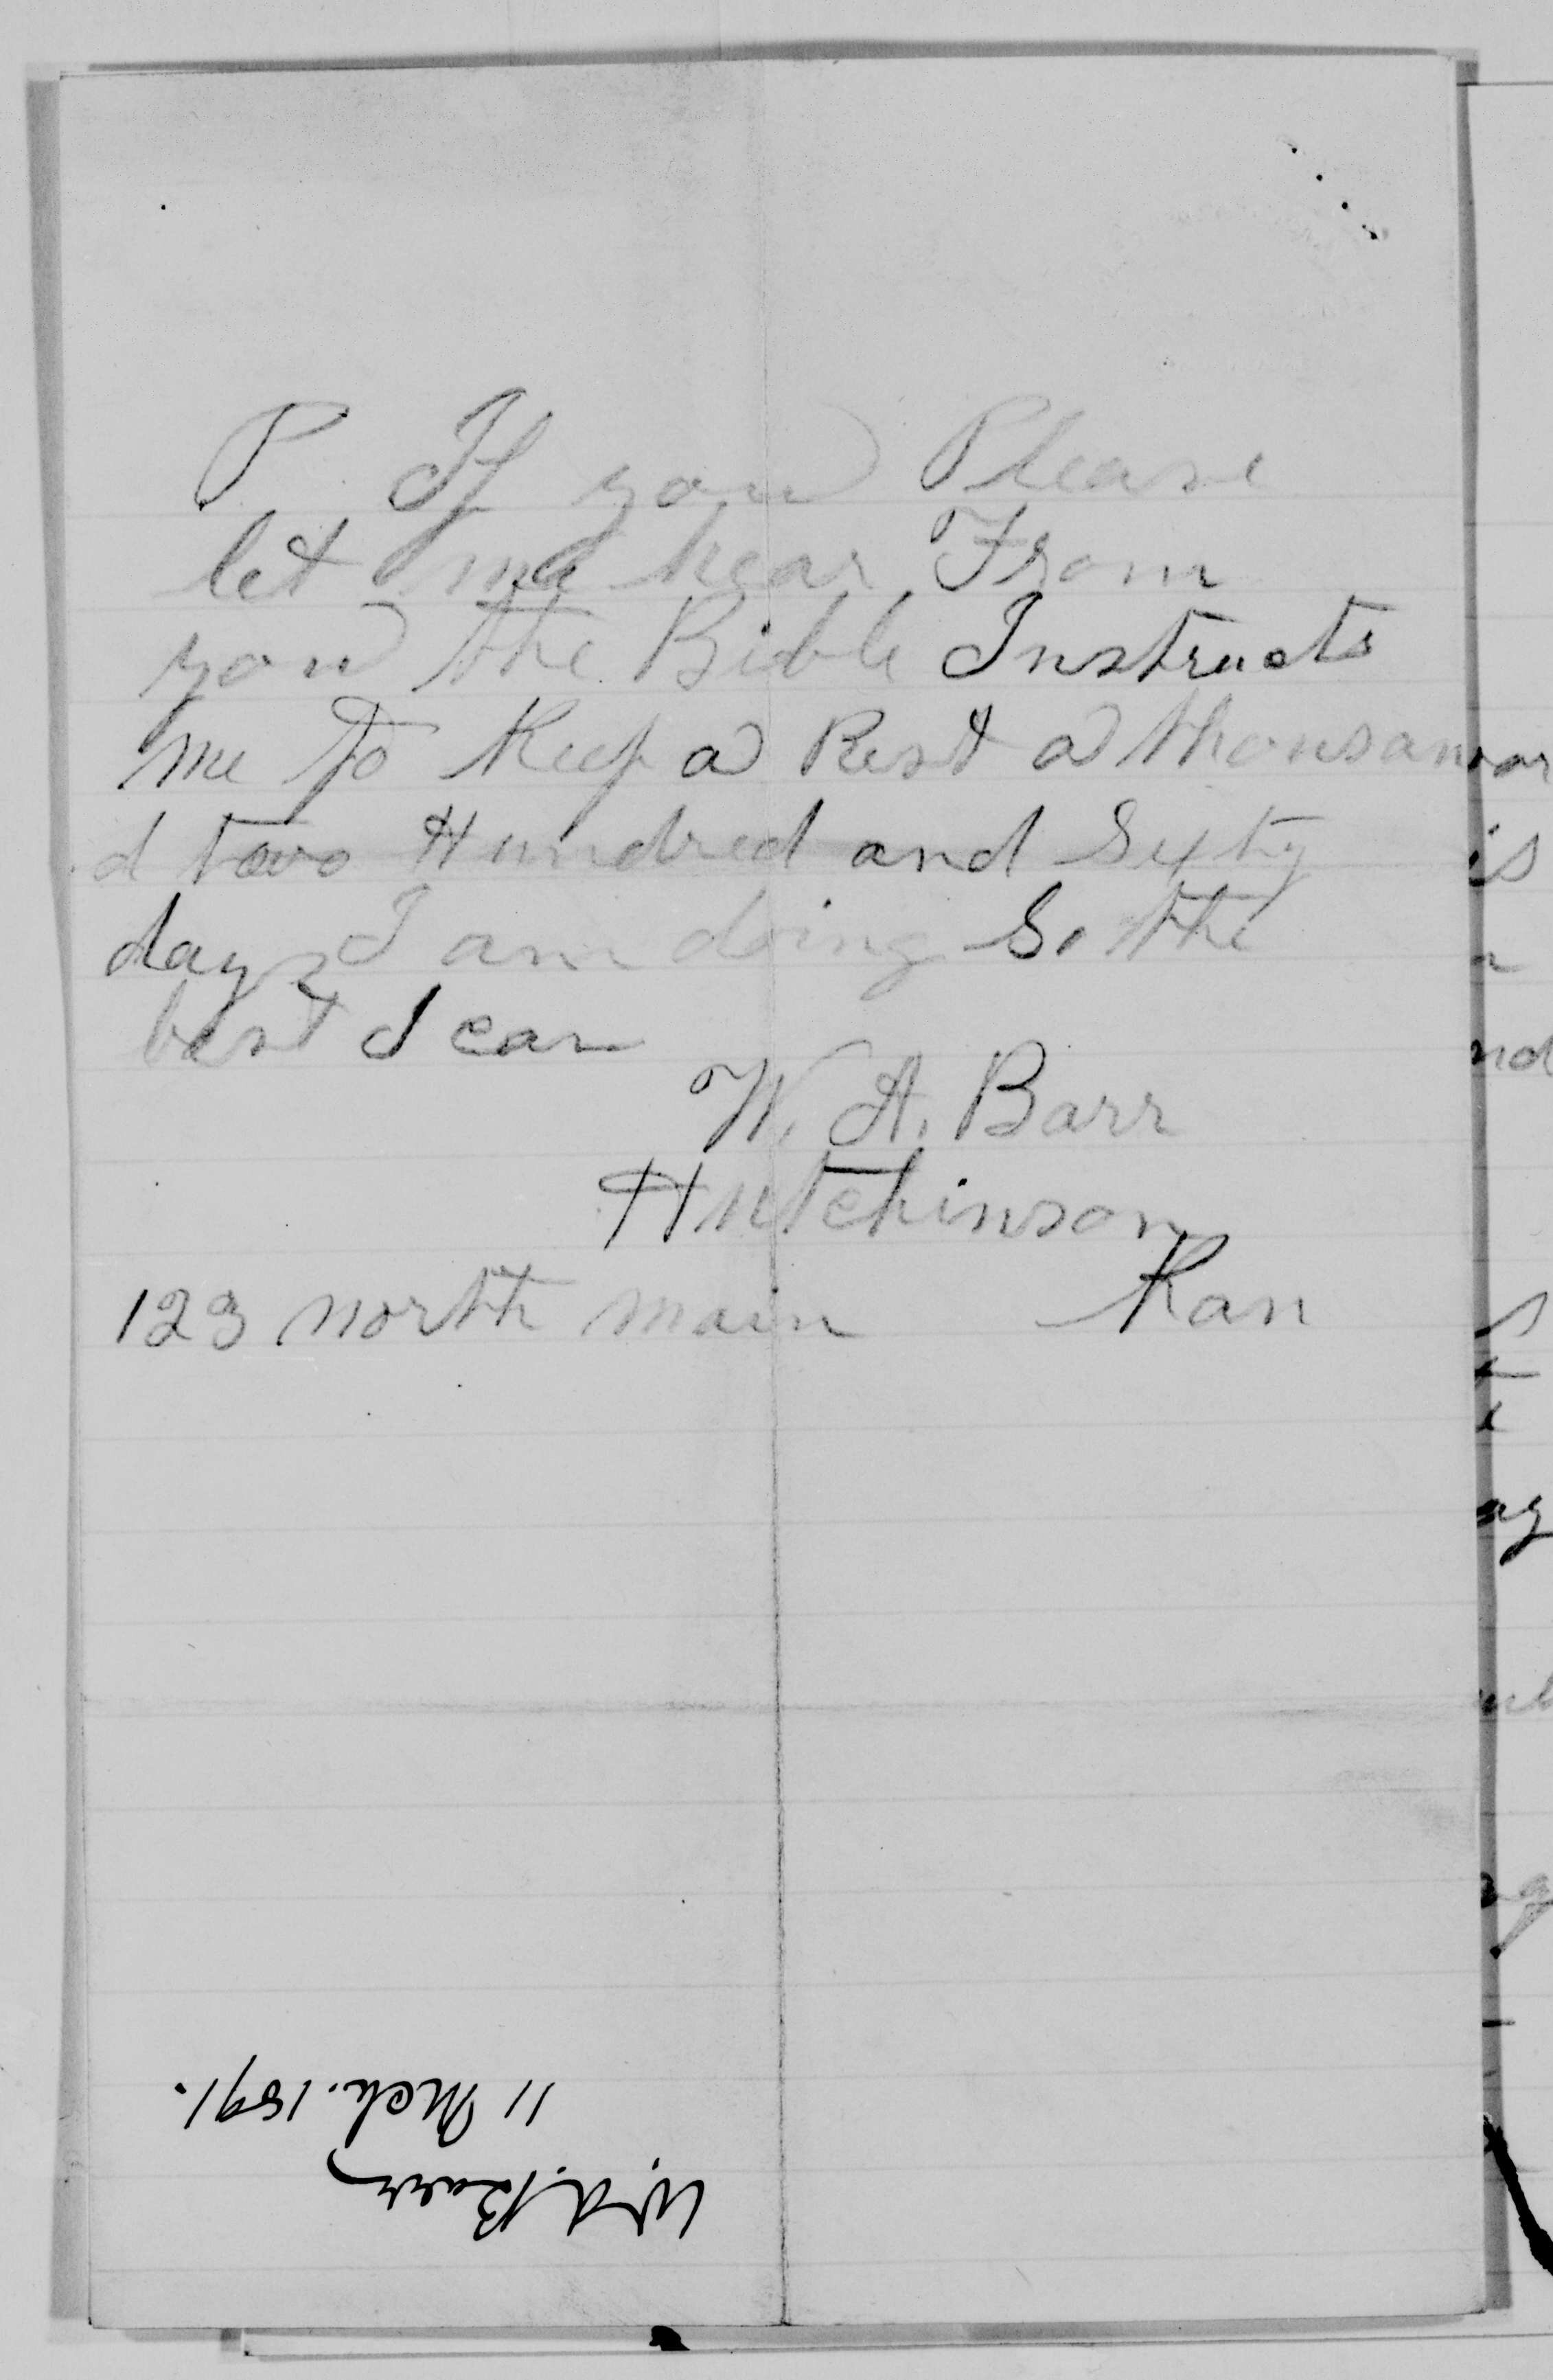 P If you Please
let me hear From
you the Bible Instructs
me to Keep a Rest a thousan
d two Hundred and Sixty
days I am doing So the
best I can
W. A. Barr
Hutchinson
123 north main Kan
W. A. Barr
11 Mch. 1891.